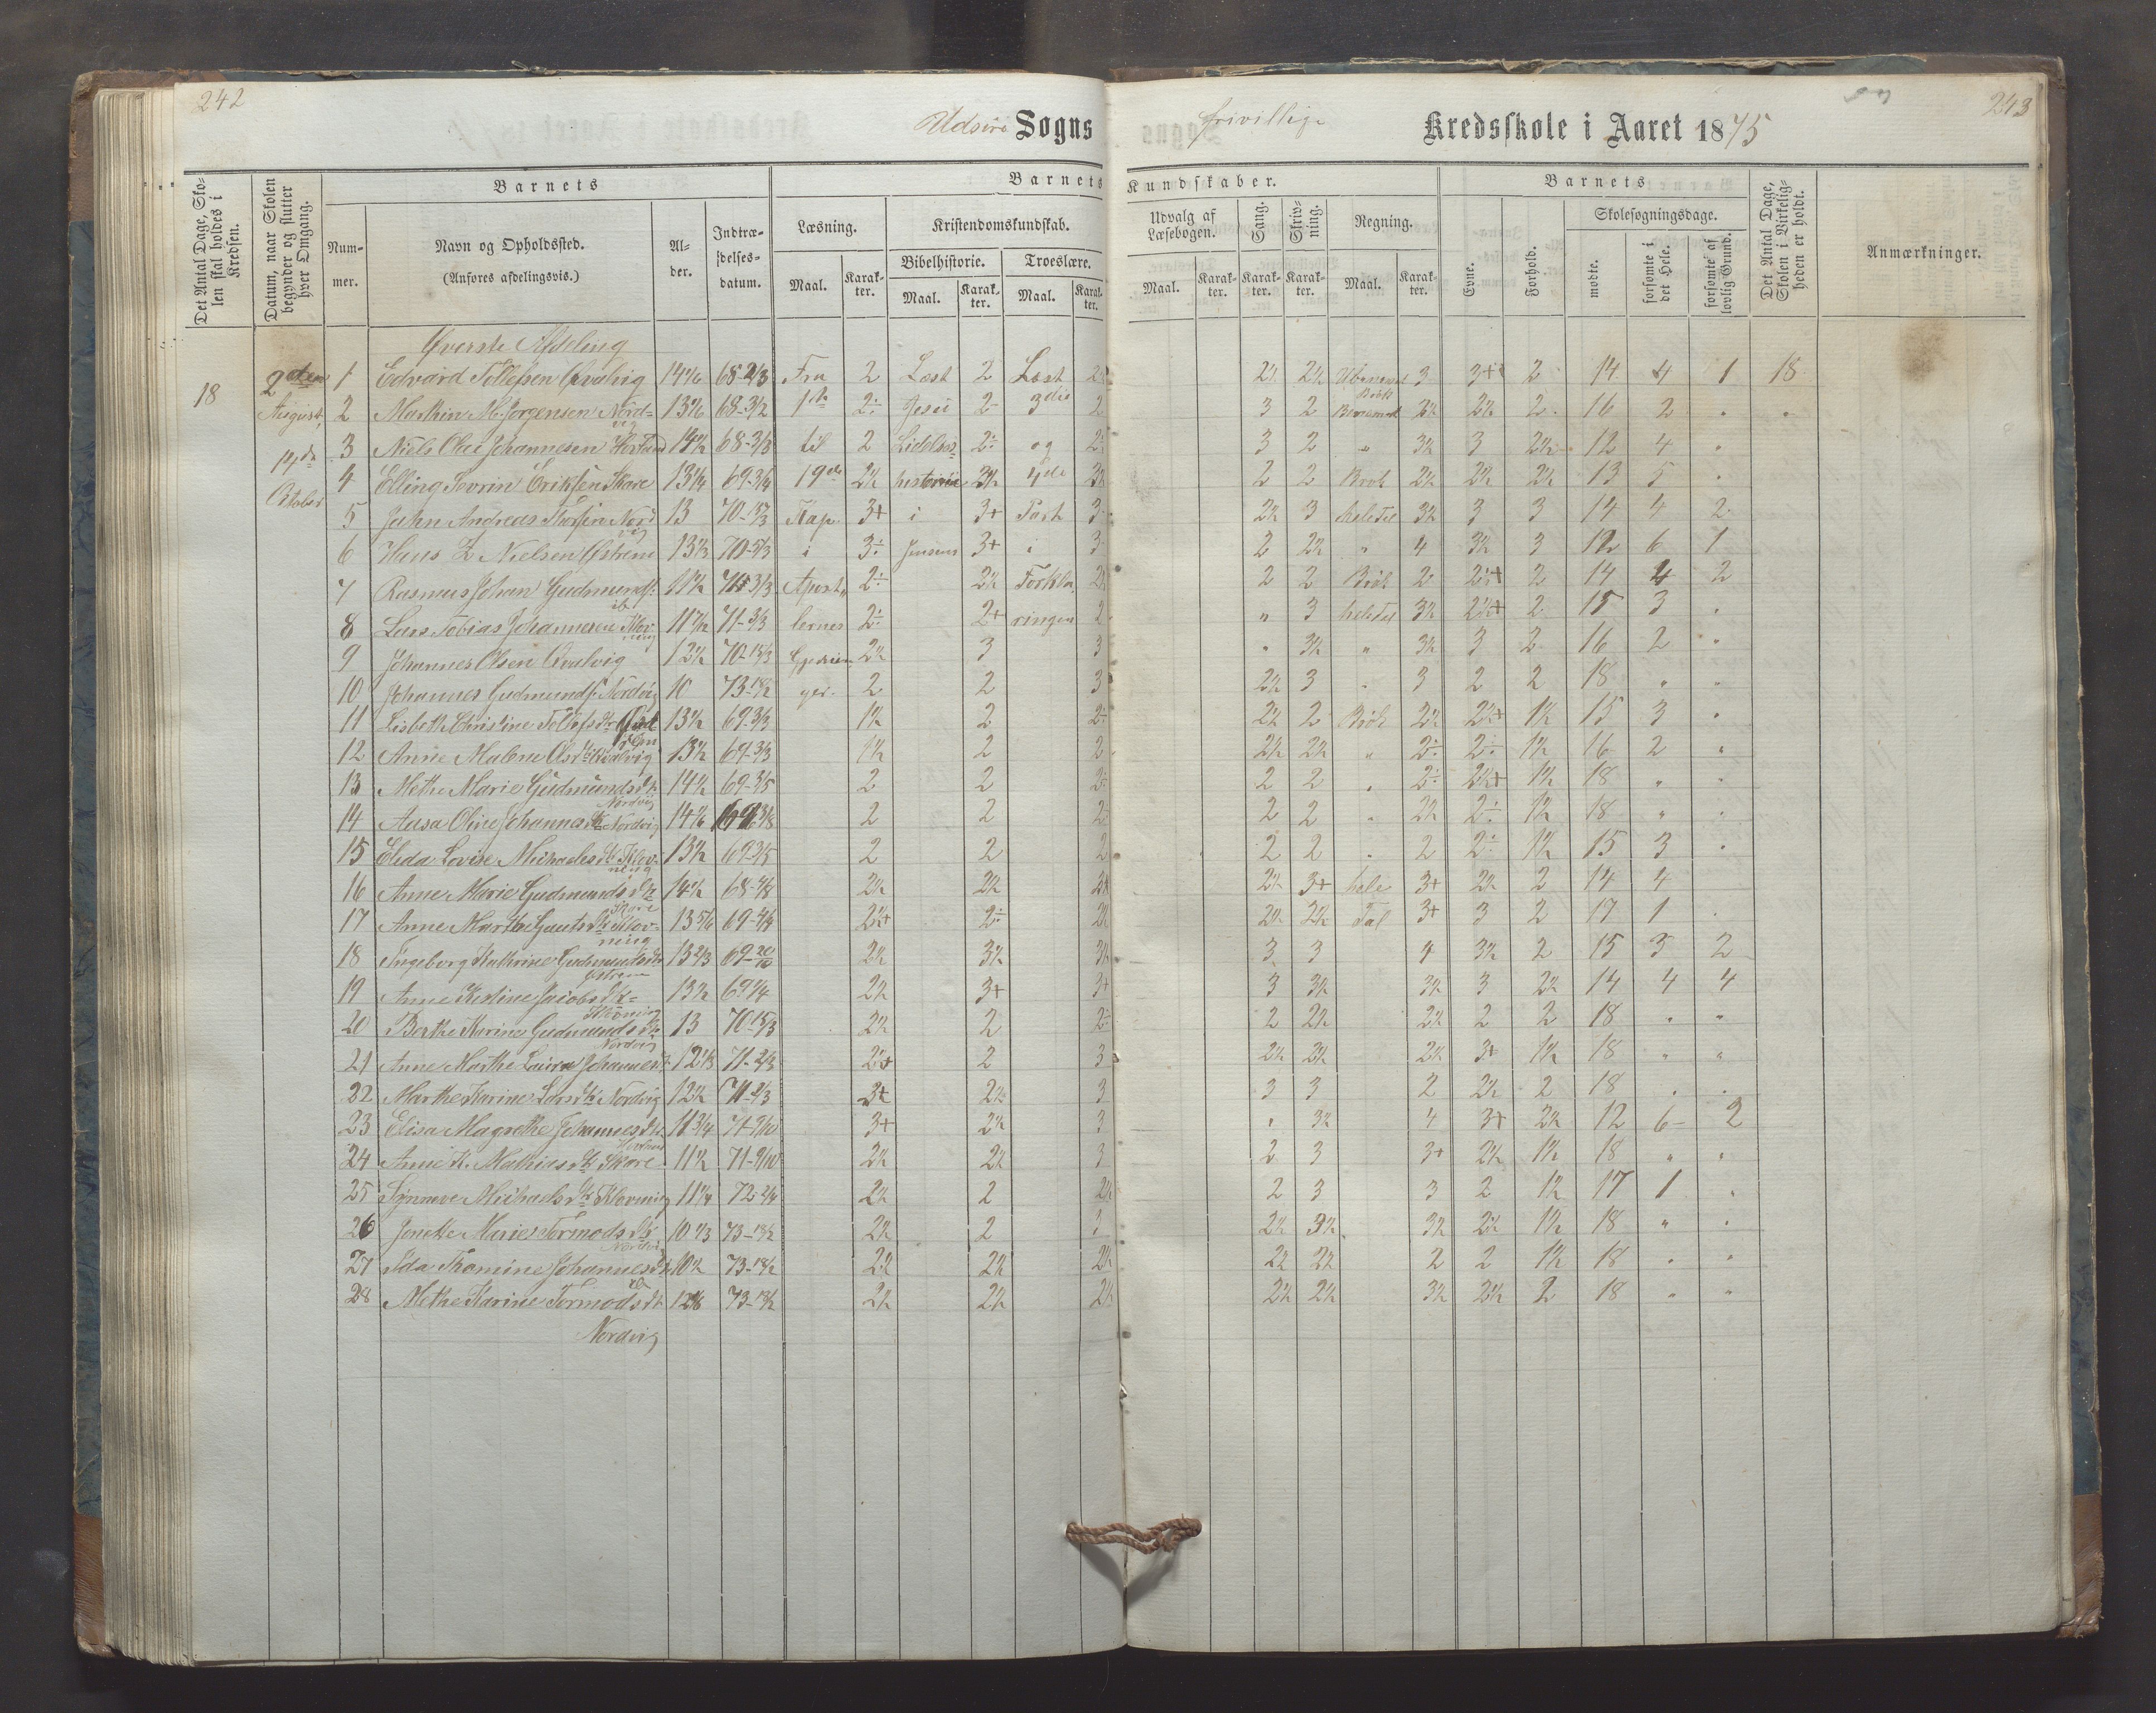 242
Udsire Sogns
frivillige Kredsskole i Aaret 1875
243
Det Antal Dage, Skolen skal holdes i Kredsen.
Datum, naar Skolen begynder og slutter hver Omgang.
Barnets
Nummer.
Navn og Opholdssted.
(Anføres afdelingsvis.)
Alder.
Indtrædelsesdatum.
Barnets Kundskaber.
Læsning.
Maal.
Karakter.
Kristendomskundskab.
Bibelhistorie.
Maal.
Karakter.
Troeslære.
Maal.
Karakter.
Udvalg af Læsebogen.
Maal.
Karakter.
Sang.
Karakter.
Skrivning.
Karakter.
Regning.
Maal.
Karakter.
Barnets
Evne.
Forhold.
Skolesøgningsdage.
mødte.
forsømte i det Hele.
forsømte af lovlig Grund.
Det Antal Dage, Skolen i Virkeligheden er holdt.
Anmærkninger.
Øverste Afdeling
18 2den August, 14de Octobr
1 Edvard Tollefsen Qvalvig 14 1/6 Fra 2 Læst 2 Læst 3 3+ 2 14 4 1 18
2 Mathin M. Jørgensen Nordvig 1ste 2÷ Jesu 2 3die 2 3 2 Brøk 2½ 2½ 2 16 2 "
3 Niels Olai Johannesen 14½ 68-3/8 til 2 Lidelses 2÷ og 2÷ 3 2 " 3½ 3 2½ 12 4 "
4 Elling Sevrin Eriksen Skare 13¼ 69-3/4 19de 2½ historie 3½ 4de 3½ 2 2 Brøk 2½ 2½ 2½ 13 5 "
5 John Andreas Nordvig 13 Kap. 3+ i 3+ Part 3 2½ 3 heleTal 3½ 3 3 14 4 2
6 Hans L Nielsen Østrem 13 1/3 70-5/3 i 3÷ Jensens 3+ i 3 2 2½ " 4 3½ 3 12 6 1
7 Rasmus Johan Gudmunds. ib 11½ Apost- 2÷ 2½ Forkla- 2½ 2 2 Brøk 2 2½+ 2 14 4 2
8 Lars Tobias Johannesen Klovning 71-3/3 lernes 2÷ 2+ ringen 2 " 3 heleTal 3½ 2½+ 2 15 3 "
9 Johannes Olsen Qvalvig 12½ Gjernin- 2½ 3 3 " 3½ " 3½ 3 2 16 2 "
10 Johannes Gudmunds. Nordvig 10 ger. 2 2 3 2½ 3 " 3 2 2 18 " "
11 Lisbeth Christine Tollefsdtr 13½ 69-3/3 1½ 2 2÷ 2½ 2 Brøk 2½ 2½+ 1½ 15 3 "
12 Anne Malene Olsdtr Qvalvig 13½ 69-3/3 1½ 2 2 2½ 2½ " 2÷ 2÷ 1½ 16 2 "
13 Methe Marie Gudmundsdtr Nordvig 14½ 69-3/5 2 2 2÷ 2 2 " 2÷ 2½+ 1½ 18 " "
14 Aasa Oline Johannesdtr Nordvig 14 1/6 2 2 2÷ 2 2 " 2½ 2÷ 1½ 18 " "
15 Elida Lovise Michaelsdtr Klovning 13½ 69-3/5 2 2 2 2 2 " 2 2÷ 1½ 15 3 "
16 Anne Marie Gudmundsdtr Skare 14½ 2½ 2½ 3+ 2½ 3+ hele 3+ 2½ 2 14 4
17 Anne Marthe Gautsdtr Klovning 13 5/6 2½+ 2÷ 2½ 2½ 2½ Tal 3+ 3 2 17 1
18 Ingeborg Kathrine Gudmundsdtr Østrem 13 2/3 2½ 3½ 3½ 3 3 4 3½ 2 15 3 2
19 Anne Kistine Jacobsdtr Klovning 13½ 2½ 3+ 3+ 3 3½ 3½ 3 2½ 14 4 4
20 Berthe Karine Gudmundsdtr Nordvig 13 2½ 2 2÷ 2 2½ 2½ 2 2 18 " "
21 Anne Marthe Laura Johannesdtr 12 1/3 2½+ 2 3 2½ 2½ 2½ 3+ 1½ 18 " "
22 Marthe Karine Larsdtr Nordvig 12½ 3+ 2½ 3 3 3 2 2½ 2 18 " "
23 Elisa Magrethe Johannesdtr 11¾ 71-9/10 3+ 2½ 3 " 3½ 4 3+ 2½ 12 6 2
24 Anne K. Mathiasdtr Skare 11½ 71-9/10 2½ 2½ 3 2 3 3+ 2½ 1½ 18 " "
25 Synneve Michaelsdtr Klovning 11¼ 2½ 2 2½ 2 3 3 2 1½ 17 1 "
26 Jonette Marie Tormodsdtr Nordvig 10 1/3 2½ 2 3 2½ 3½ 3½ 2½ 1½ 18 " "
27 Ida Thomine Johannesdtr 10½ 2½ 2½ 2½ 2½ 2½ 2 2 1½ 18 " "
28 Methe Karine Tormodsdtr 2½ 2½ 2½ 2½ 2½ 3½ 2½ 2 18 " "
Nordvig